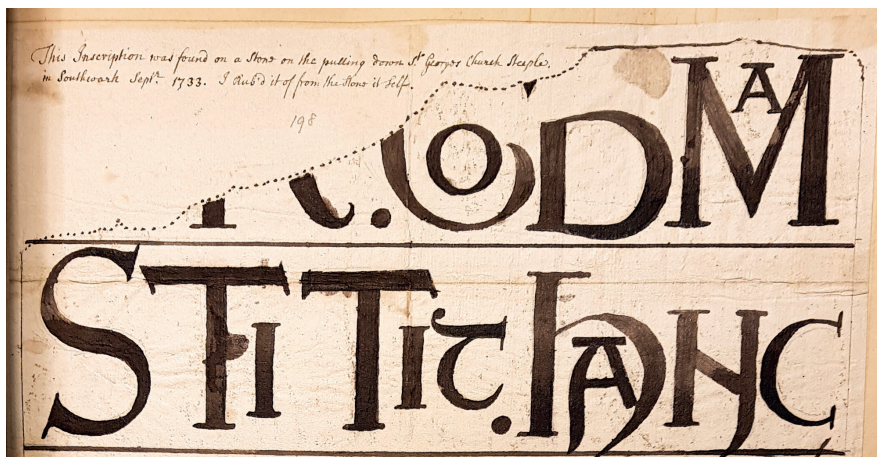 This Inscription was found on a Stone on the pulling down St Georges Church Steeple,
in Southwark Septr 1733. I Rub'd it of from the Stone it Self.
198
R.CODMA
STITIT.HANC